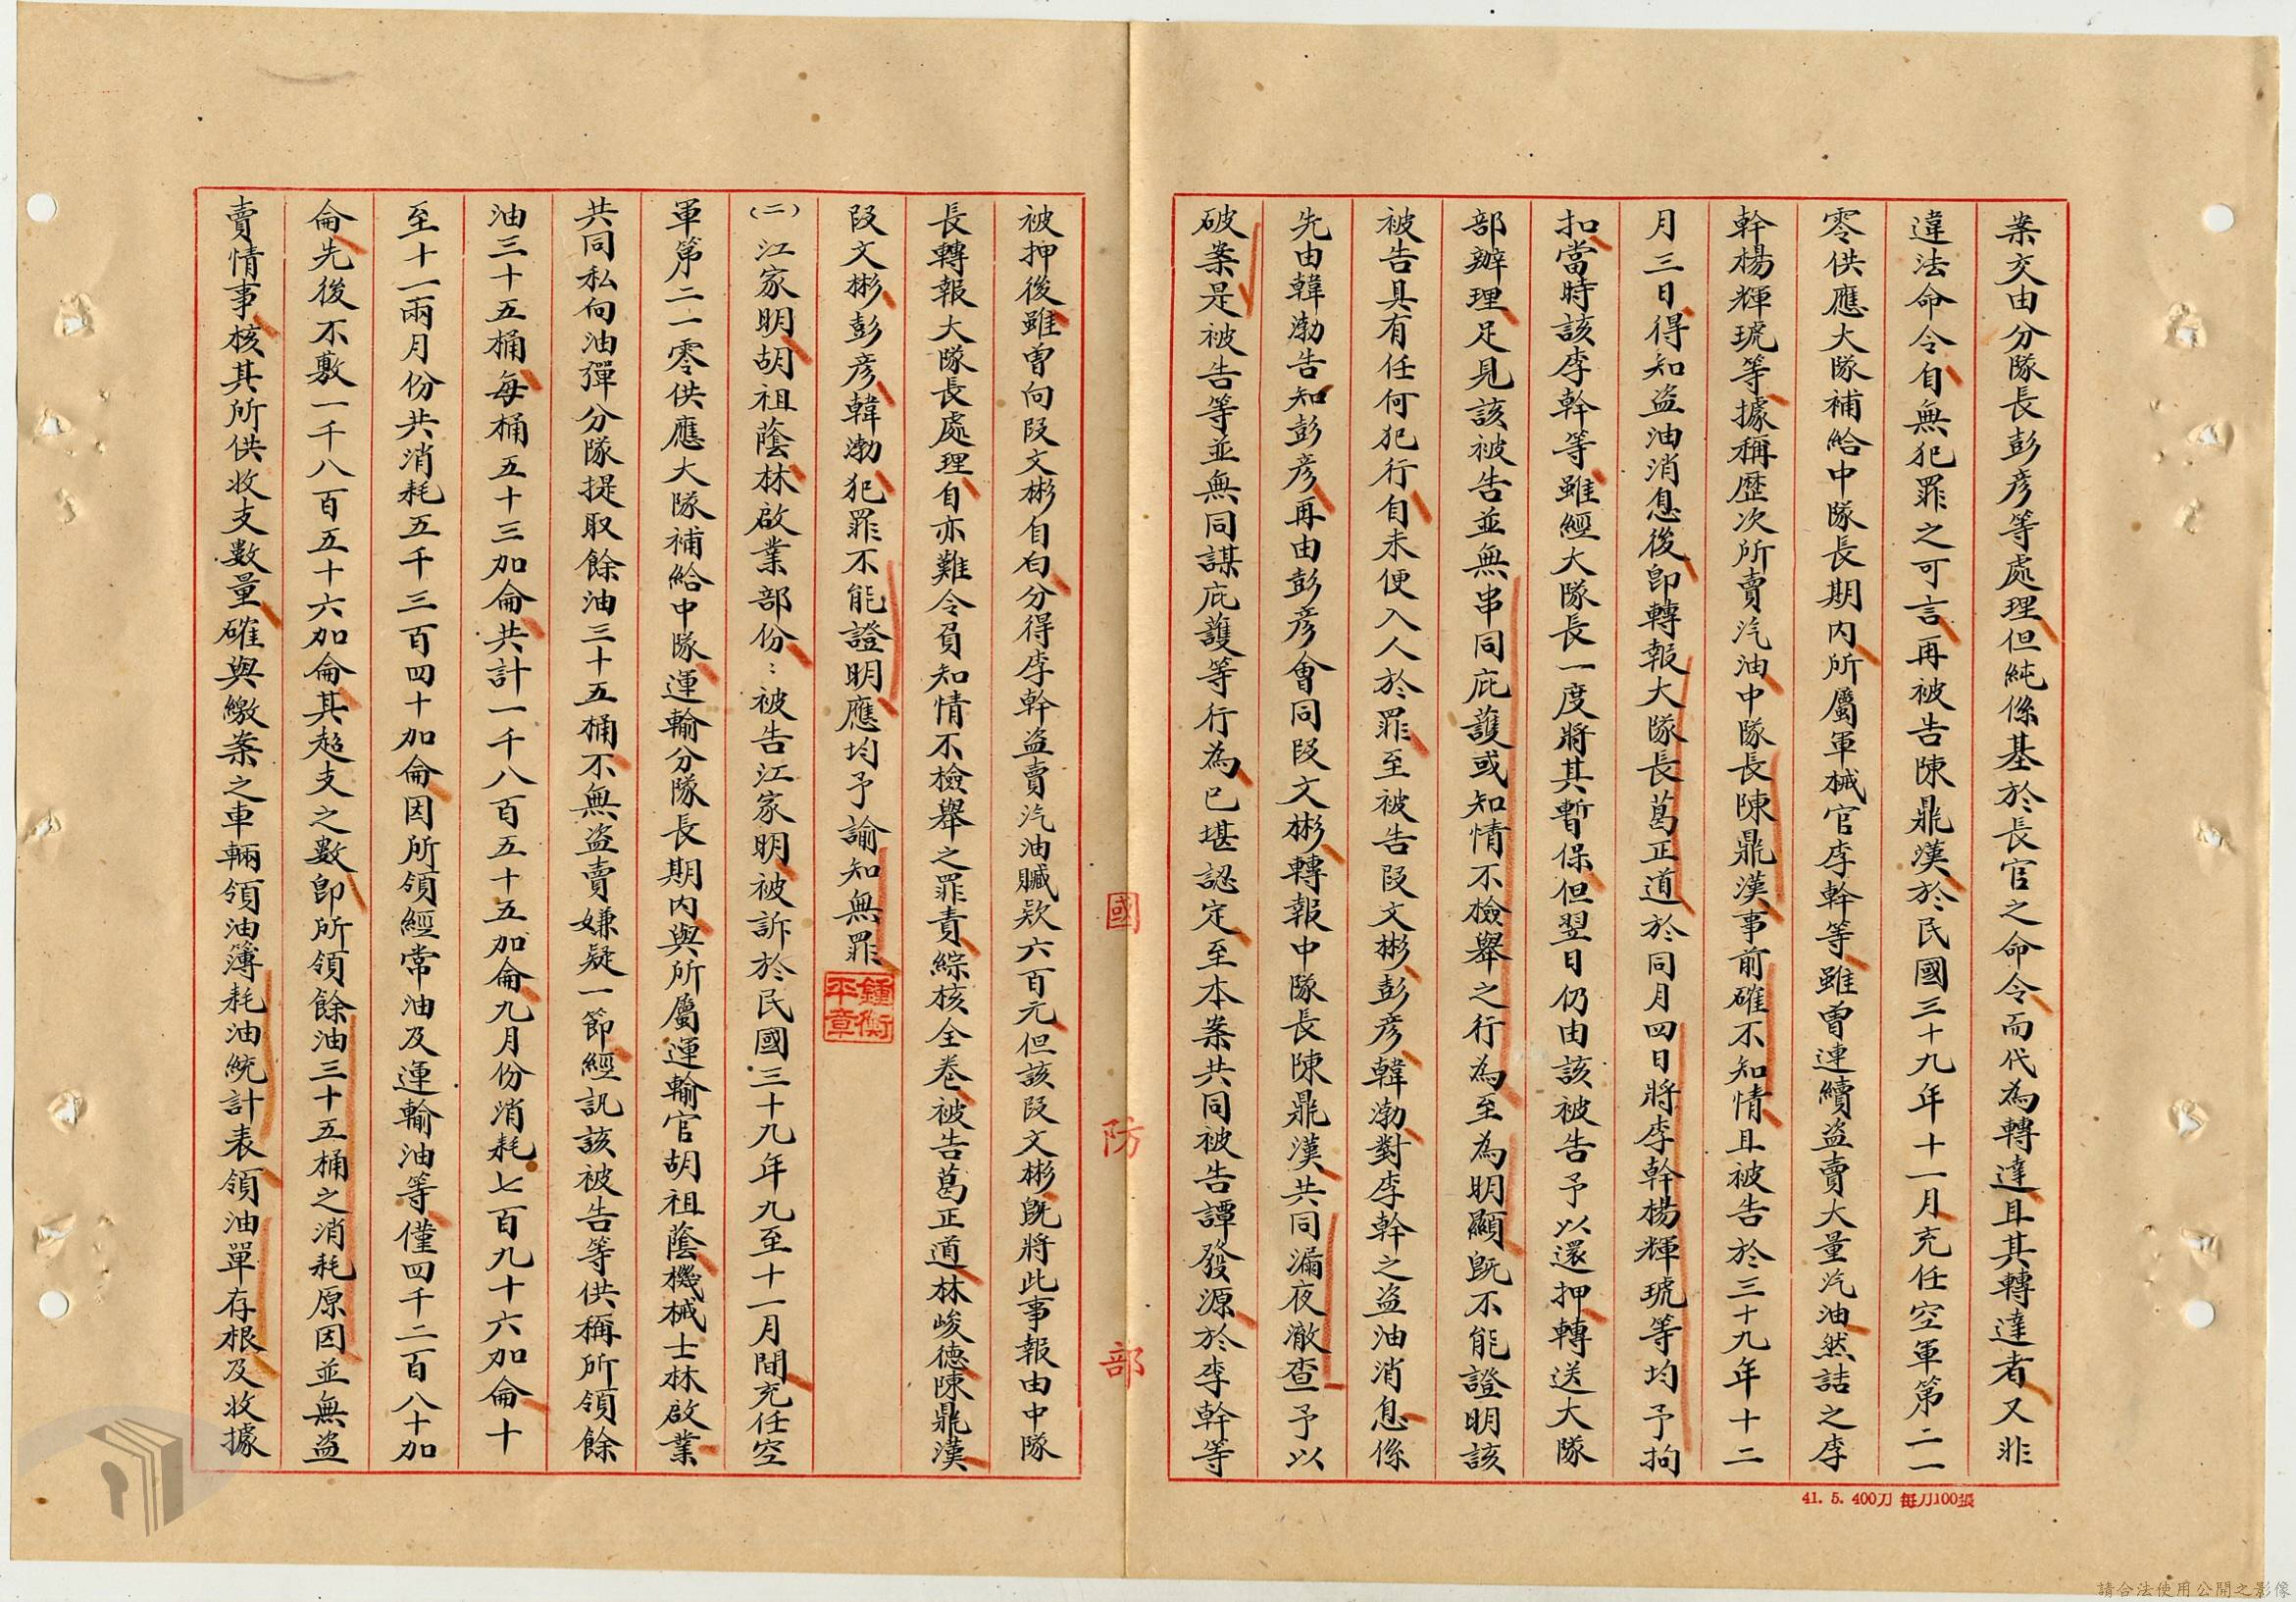 案交由分隊長彭彥等處理但純係基於長官之命令而代為轉達且其轉達者又非
違法命令自無犯罪之可言再被告陳鼎漢於民國三十九年十一月充任空軍第二一
零供應大隊補給中隊長期內所屬軍械官李幹等雖曾連續盜賣大量汽油然詰之李
幹楊輝琥等據稱歷次所賣汽油中隊長陳鼎漢事前確不知情且被告於三十九年十二
月三日得知盜油消息後即轉報大隊長葛正道於同月四日將李幹楊輝琥等均予拘
扣當時該李幹等雖經大隊長一度將其暫保但翌日仍由該被告予以還押轉送大隊
部辦理足見該被告並無串同庇護或知情不檢舉之行為至為明顯既不能證明該
被告具有任何犯行自未便入人於罪至被告段文彬彭彥韓渤對李幹之盜油消息係
先由韓渤告知彭彥再由彭彥會同段文彬轉報中隊長陳鼎漢共同漏夜澈查予以
破案是被告等並無同謀庇護等行為已堪認定至本案共同被告譚發源於李幹等
國防部
被押後雖曾向段文彬自白分得李幹盜賣汽油贓欵六百元但該段文彬既將此事報由中隊
長轉報大隊長處理自亦難令負知情不檢舉之罪責綜核全卷被告葛正道林峻德陳鼎漢
段文彬彭彥韓渤犯罪不能證明應均予諭知無罪
鍾衡平章
(二)江家明胡祖蔭林啟業部份：被告江家明被訴於民國三十九年九至十一月間充任空
軍第二一零供應大隊補給中隊運輸分隊長期內與所屬運輸官胡祖蔭機械士林啟業
共同私向油彈分隊提取餘油三十五桶不無盜賣嫌疑一節經訊該被告等供稱所領餘
油三十五桶每桶五十三加侖共計一千八百五十五加侖九月份消耗七百九十六加侖十
至十一兩月份共消耗五千三百四十加侖因所領經常油及運輸油等僅四千二百八十加
侖先後不敷一千八百五十六加侖其超支之數即所領餘油三十五桶之消耗原因並無盜
賣情事核其所供收支數量確與繳案之車輛領油簿耗油統計表領油單存根及收據
41. 5. 400刀 每刀100張
請合法使用公開之影像